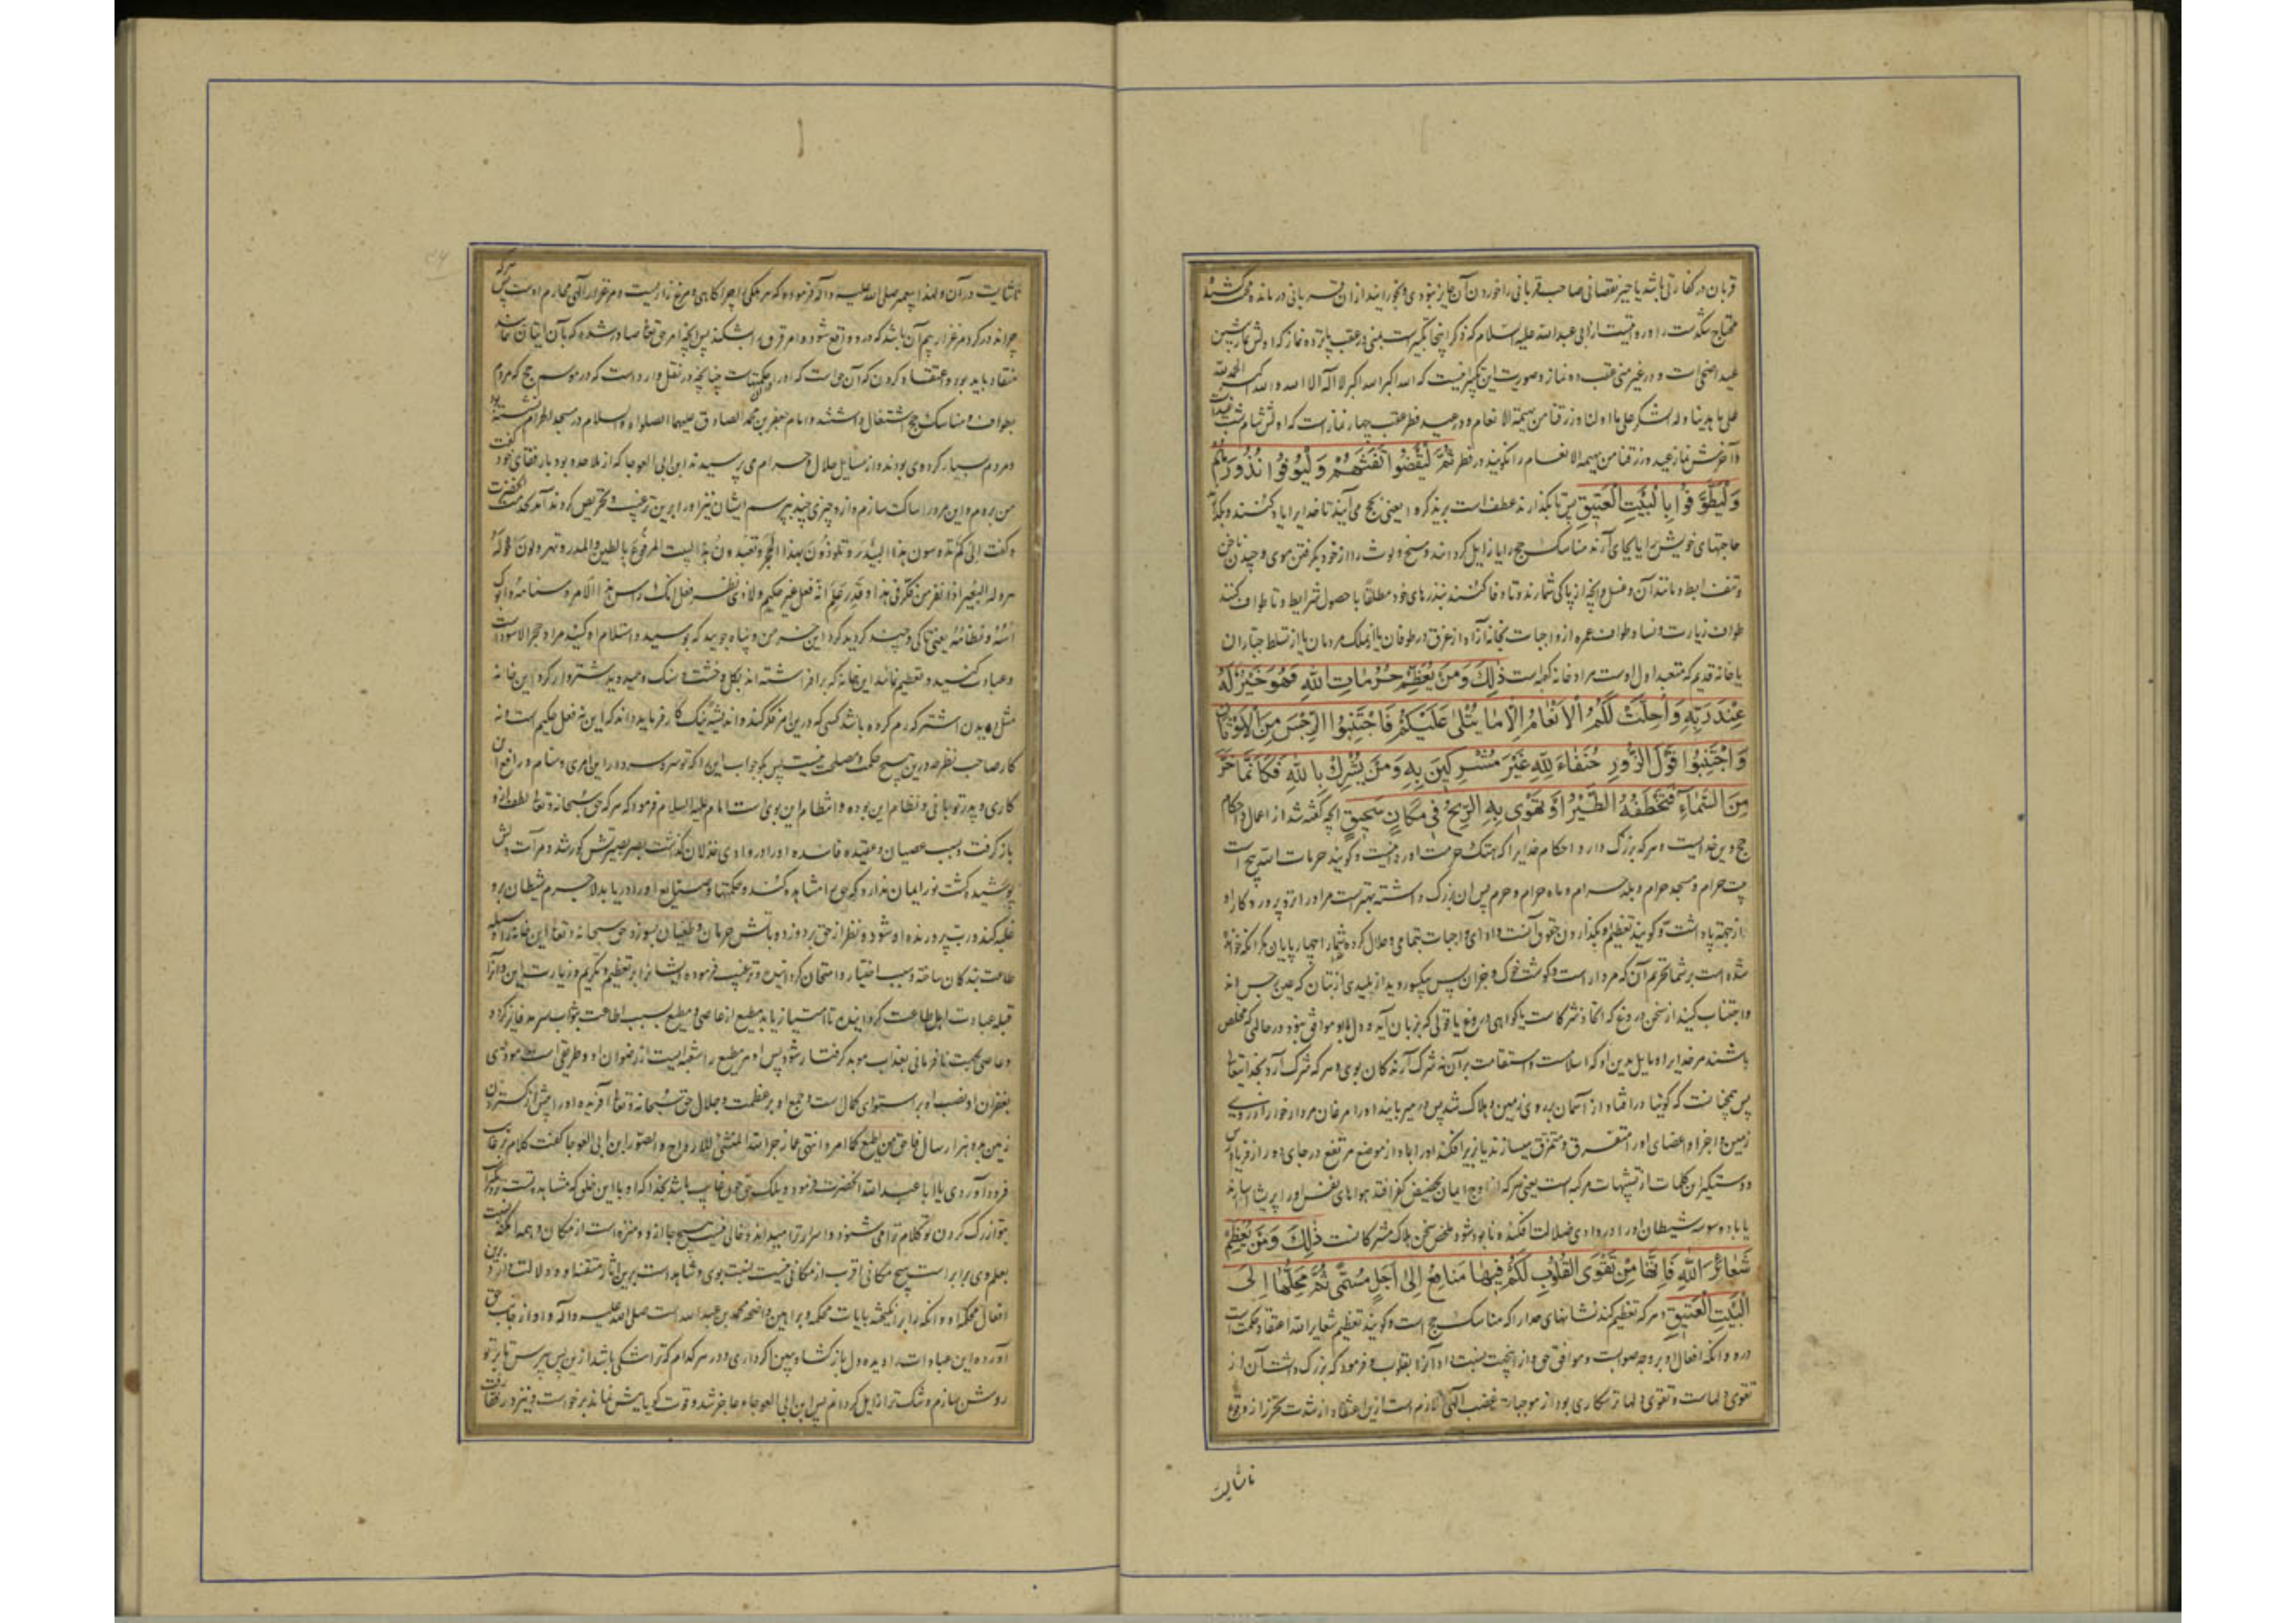 قربان در کفارتی باشد یا جبر نقصانی صاحب قربانی را خوردن آن جایز نبود و بخورانید از ان قربانی درمانده محنت کشیده
محتاج تنگدست را و روایتست از ابی عبدالله علیه السلام که ذکر اینجا تکبیرست بمنی در عقب پانزده نماز که اولش نماز پیشین
عید اضحی است و در غیر منی عقب ده نماز و صورت این تکبیر اینست که الله اکبر الله اکبر لا اله الا الله و الله اکبر الحمد لله
علی ما هدینا و له الشکر علی ما اولنا و رزقنا من بهیمة الانعام و در عید فطر عقب چهار نماز است که اولش شام شب عیدست
و آخرش نماز عید و رزقنا من بهیمة الانعام را نکویند در فطر ثُمَّ لْيَقْضُوا تَفَثَهُمْ وَلْيُوفُوا نُذُورَهُمْ
وَلْيَطَّوَّفُوا بِالْبَيْتِ الْعَتِيقِ پس تا بکذارند عطف است بر یذکروا یعنی بحج می آیند تا خدایرا یاد کنند و بکذارند
حاجتهای خویش را یا بجای آرند مناسک حج را یا زایل کردانند وسخ و لوث را از خود بکرفتن موی و چیدن ناخن
و نتف ابط و مانند آن و غسل و آنچه از پاکی شمارند و تا وفا کنند بنذرهای خود مطلقا با حصول شرایط و تا طواف کنند
طواف زیارت و نسا و طواف عمره از واجبات بخانه آزاد از غرق در طوفان یا از ملک مردمان یا از تسلط جباران
یا خانه قدیم که متعبد اول اوست مراد خانه کعبه است ذٰلِكَ وَمَنْ يُعَظِّمْ حُرُمَاتِ اللهِ فَهُوَ خَيْرٌ لَهُ
عِنْدَ رَبِّهِ وَأُحِلَّتْ لَكُمُ الْأَنْعَامُ إِلَّا مَا يُتْلَىٰ عَلَيْكُمْ فَاجْتَنِبُوا الرِّجْسَ مِنَ الْأَوْثَانِ
وَاجْتَنِبُوا قَوْلَ الزُّورِ حُنَفَاءَ لِلّٰهِ غَيْرَ مُشْرِكِينَ بِهِ وَمَنْ يُشْرِكْ بِاللهِ فَكَأَنَّمَا خَرَّ
مِنَ السَّمَاءِ فَتَخْطَفُهُ الطَّيْرُ أَوْ تَهْوِي بِهِ الرِّيحُ فِي مَكَانٍ سَحِيقٍ آنچه گفته شد از اعمال و احکام
حج دین خدایست و هرکه بزرک دارد احکام خدایرا که هتک حرمت او روا نیست و کویند حرمات الله پنج است
بیت حرام و مسجد حرام و بلد حرام و ماه حرام و حرم پس ان بزرک داشتن بهترست مر او را نزد پروردکار او
از جهة پاداشت و کویند تعظیم بکذاردن حقوق آنست و ادای واجبات بتمامی و حلال کرده شد شما را چهارپایان مکر آنکه خوانده
شده است بر شما تحریم آن که مردارست و کوشت خوک و جز ان پس یکسو روید از پلیدی از بتان که عین رجس اند
و اجتناب کنید از سخن دروغ که اتخاذ شرکاست یا کواهی دروغ یا قولی که بزبان آید و دل با او موافق نبود در حالتی که مخلص
باشند مر خدایرا و مایل بدین او که اسلامست و استقامت بر آن نه شرک آرندکان بوی و هرکه شرک آرد بخدایتعالی
پس همچنانست که کوئیا در افتاد از آسمان بر روی زمین و هلاک شد پس میربایند او را مرغان مردارخوار از روی
زمین و اجزا و اعضای او را متفرق و متمزق میسازند یا بزیر افکند او را باد از موضع مرتفع در جای دور از فریادرس
و دستکیر این کلمات از تشبیهات مرکبه است یعنی هرکه از اوج ایمان بحضیض کفر افتد هواهای نفس او را پریشان سازند
یا باد وسوسه شیطان او را در وادی ضلالت افکند و نابود شود ملخص سخن هلاک مشرکانست ذٰلِكَ وَمَنْ يُعَظِّمْ
شَعَائِرَ اللهِ فَإِنَّهَا مِنْ تَقْوَى الْقُلُوبِ لَكُمْ فِيهَا مَنَافِعُ إِلَىٰ أَجَلٍ مُسَمًّى ثُمَّ مَحِلُّهَا إِلَى
الْبَيْتِ الْعَتِيقِ و هرکه تعظیم کند نشانهای خدا را که مناسک حج است و کویند تعظیم شعایر الله اعتقاد حکمت است
در و آنکه افعال او بر وجه صوابست و موافق حق و از اینجهت بنسبت داد آنرا بقلوب و فرمود که بزرک داشت آن از
تقوی دلهاست و تقوی دلها ترسکاری بود از موجبات غضب الهی و لازم است ازین اعتقاد از شدت تحرز از وقوع
ناشایست
ناشایست در آن و لهذا پیغمبر صلی الله علیه و اله فرموده که هر ملکی را چراکاهی و مرغزاریست و مرغزار الهی محارم اوست پس هرکه
چراند در کرد مرغزار بیم آن باشد که درو واقع شود و امر قرق را بشکند پس آنچه امر حق تعالی صادر شده که بآن ایتان نمایند
منقاد باید بود و اعتقاد کردن که آن حق است که او را حکمتهاست چنانچه در نقل وارد است که در موسم حج که مردم
بطواف و مناسک حج اشتغال داشتند و امام جعفر بن محمد الصادق علیهما الصلوة و السلام در مسجد الحرام نشسته بود
و مردم بسیار کرد وی بودند و از مسایل حلال و حرام می پرسیدند ابن ابی العوجا که از ملاحده بود با رفقای خود گفت
من بروم و این مرد را ساکت سازم و ازو چیزی چند بپرسم ایشان نیز او را برین ترغیب و تحریص کردند آمد بخدمت آنحضرت
و گفت الی کم تدوسون هذا البیدر و تلوذون بهذا الحجر و تعبدون هذا البیت المرفوع بالطین و المدر و تهرولون حوله
هرولة البعیر اذا نفر من فکر فی هذا و قدر علم انه فعل غیر حکیم و لا ذی نظر فقل انک راس هذا الامر و سنامه و ابوک
اسه و نظامه یعنی تا کی و چند کردید کرد این خرمن و پناه جویید که بوسید و استلام کنید مراد حجر الاسودست
و عبادت کنید و تعظیم نمائید این خانه که برافراشته اند بکل و خشت و سنک و میدوید شتروار کرد این خانه
مثل دویدن اشتر که رم کرده باشد کسی که درین امر فکر کند و اندیشه نیک کار فرماید داند که این نه فعل حکیم است و نه
کار صاحب نظر و درین هیچ حکمت و مصلحت نیست پس بکو جواب این را که تو سره و سردار این امری و سنام و رافع این
کاری و پدر تو بانی و نظام این بوده و انتظام این بوی است امام علیه السلام فرمود که هرکه حق سبحانه و تعالی لطف ازو
باز کرفت و بسبب عصیان و عقیده فاسده او را در وادی خذلان گذاشت بصر بصیرتش کور شد و مرآت دلش
پوشیده کشت نور ایمان ندارد که حق را مشاهده کند و حکمتها و صنایع او را دریابد لاجرم شیطان برو
غلبه کند و رب پرورنده او شود و نظر از حق بردوزد و بآتش حرمان و طغیان بسوزد حق سبحانه و تعالی این خانه را وسیله
طاعت بندکان ساخته و سبب اختبار و امتحان کردانیده و ترغیب فرموده ایشانرا بر تعظیم و تکریم و زیارت این و آنرا
قبله عبادت اهل طاعت کردانیده تا امتیاز یابد مطیع از عاصی و مطیع بسبب اطاعت بثواب سرمد فایز کردد
و عاصی بجهت نافرمانی بعذاب موبد کرفتار شود پس او مر مطیع را شعبه ایست از رضوان او و طریقی است مودی
بغفران او نصب او بر استوای کمال است و جمع او بر عظمت و جلال حق سبحانه و تعالی آفریده او را پیش از کستردن
زمین بدو هزار سال فاحق من اطیع کما امر و انتهی عما زجر الله المنشئ للارواح و الصور ابن ابی العوجا گفت کلام بر غایب
فرود آوردی یا ابا عبدالله آنحضرت فرمود ویلک چون غایب باشد بخدا که او با این خلق که مشاهدست و نزدیکتر
بتو از رک کردن تو کلام ترا می شنود و اسرار ترا میداند و خالی نیست هیچ جا ازو و منزه است از مکان و همه امکنه نسبت
بعلم وی برابر است هیچ مکانی اقرب از مکانی نیست بنسبت بوی و شاهد است برین اثار متقنه او و دلالت دارد برین
افعال محکمه او و آنکه را برانکیخت بایات محکمه و براهین واضحه محمد بن عبدالله است صلی الله علیه و اله و او از جانب حق
آورده این عبادات را دیده دل باز کشا و ببین اکر داری و در هر کدام که ترا شکی باشد ازین پس بپرس تا بر تو
روشن سازم و شک ترا زایل کردانم پس ابن ابی العوجا عاجز شد و قوت کویاییش نماند برخواست و نزد رفقا رفت